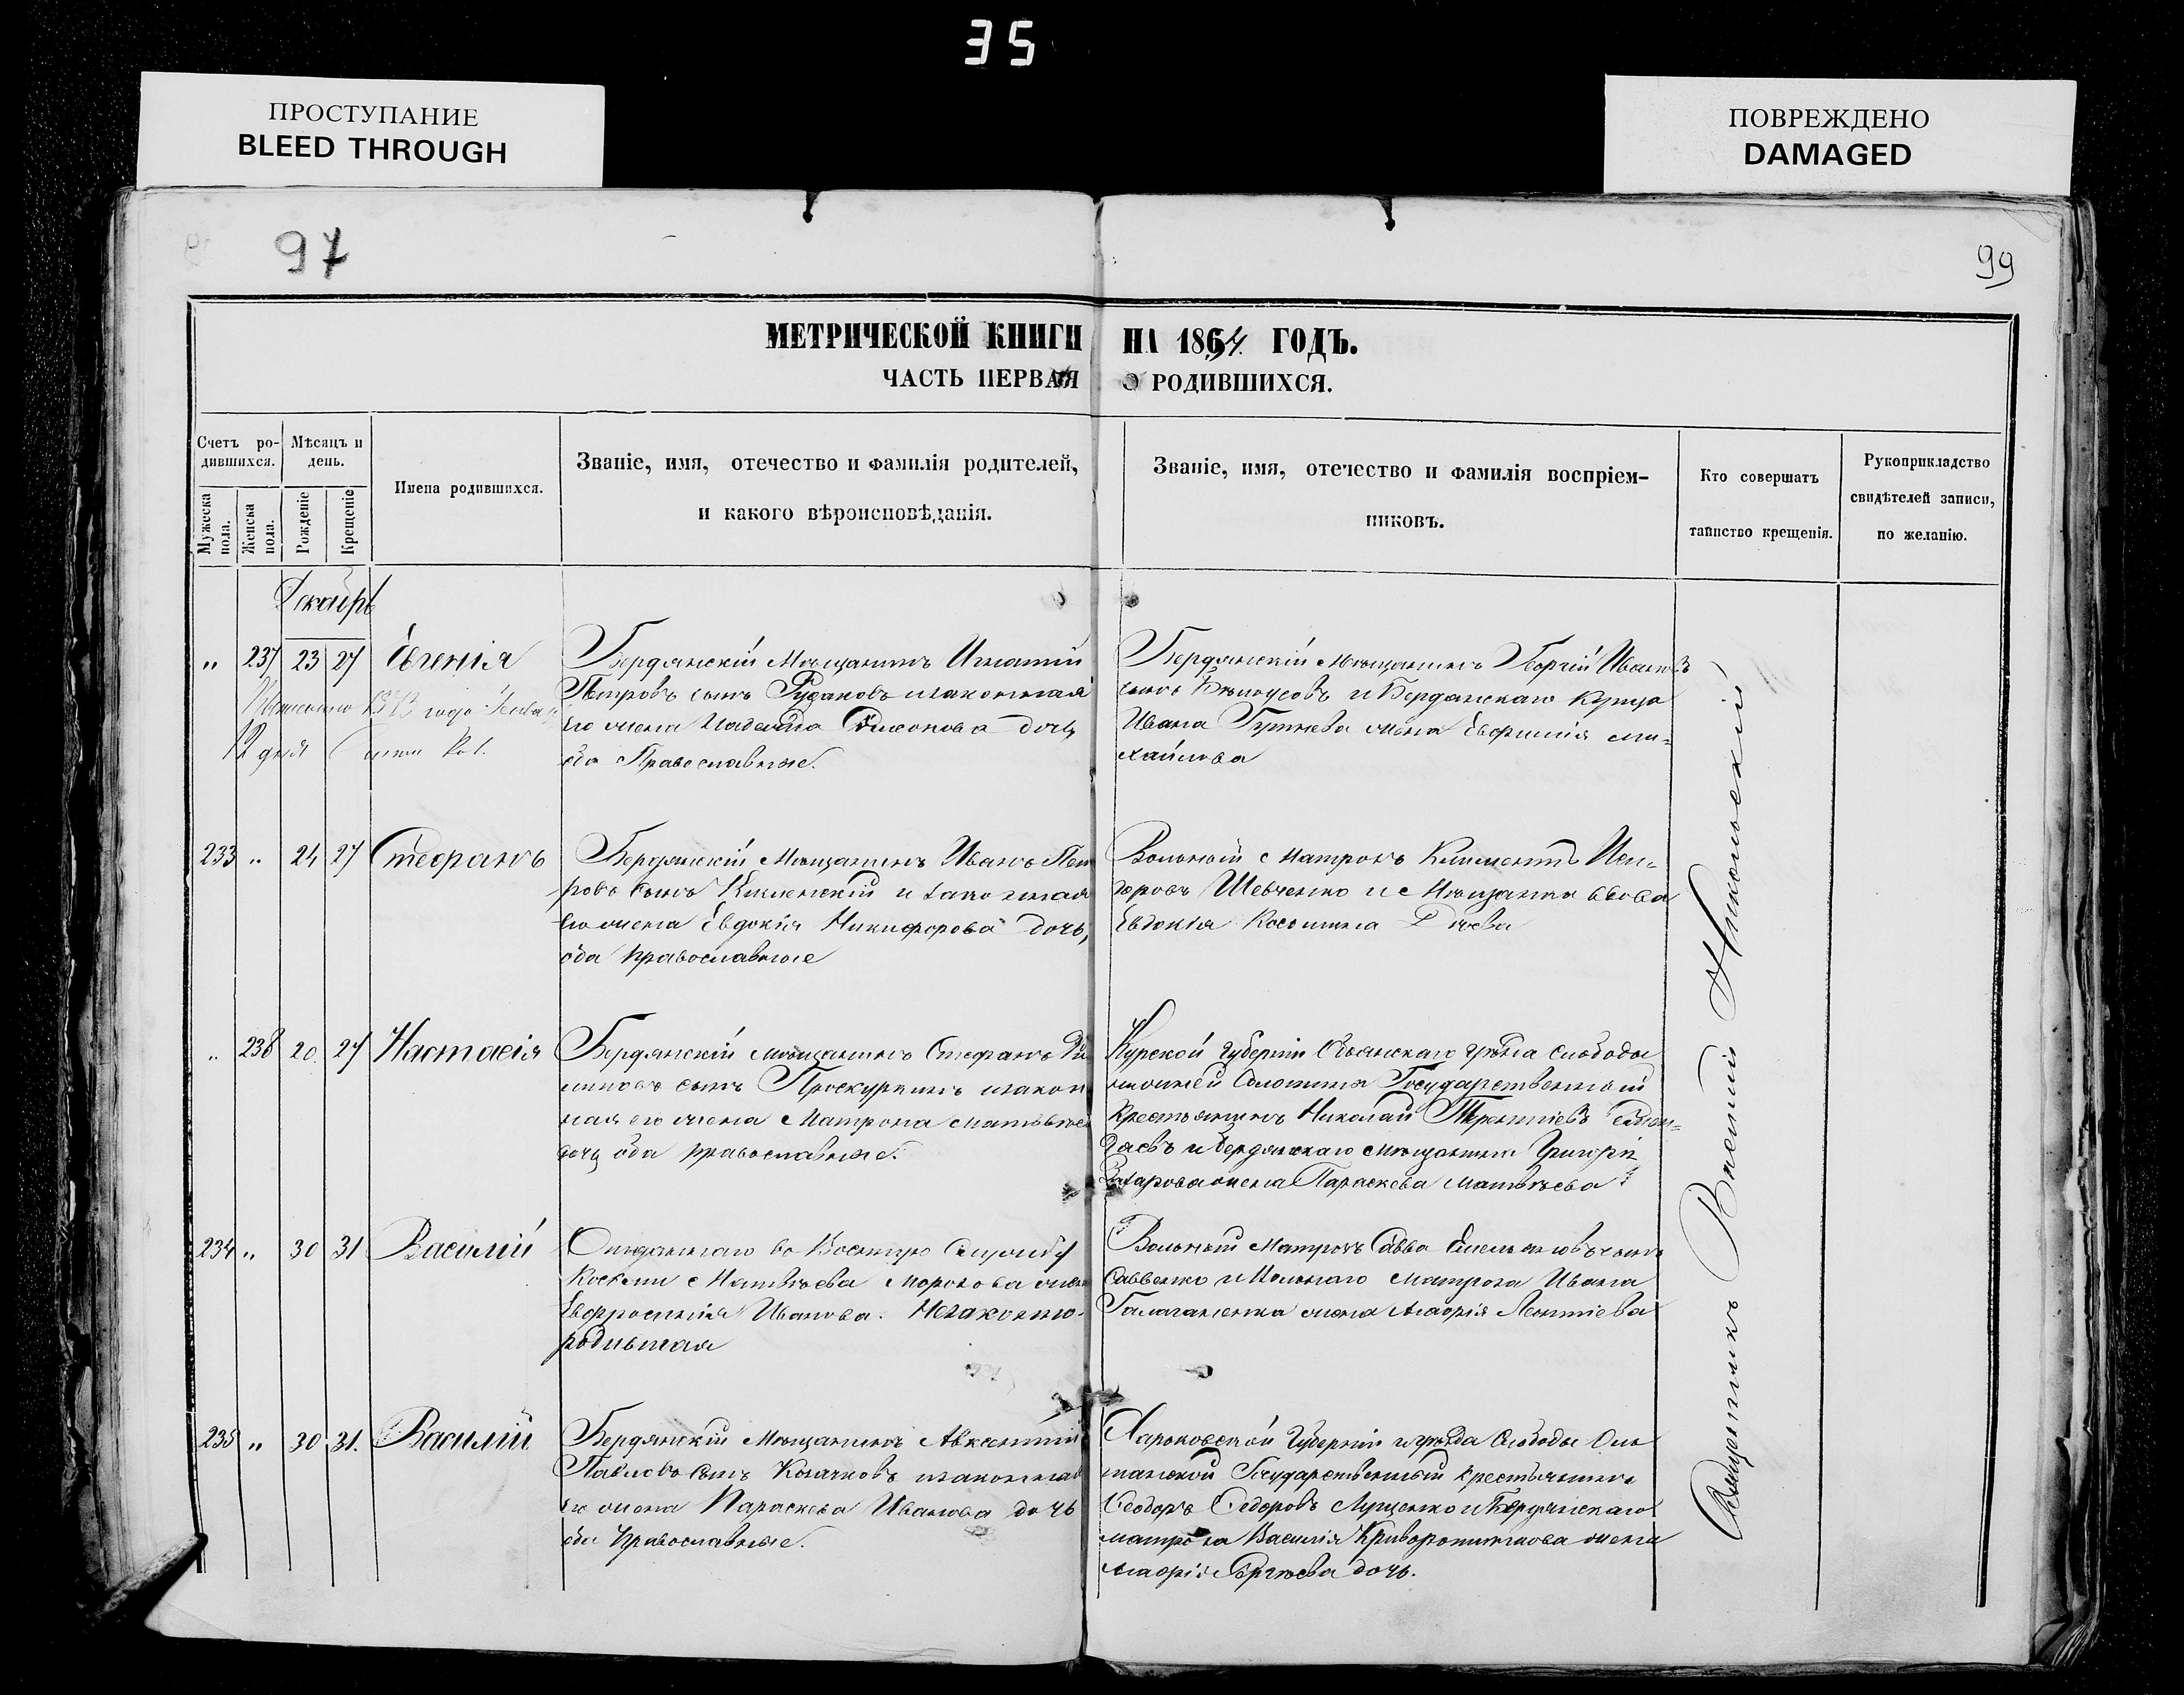 35
ПРОСТУПАНИЕ
BLEED THROUGH
ПОВРЕЖДЕНО
DAMAGED
97
99
МЕТРИЧЕСКОЙ КНИГИ НА 1864 ГОДЪ.
ЧАСТЬ ПЕРВАЯ О РОДИВШИХСЯ.
Счетъ ро-
дившихся.
Мужеска
пола.
Женска
пола.
Мѣсяцъ и
день.
Рожденіе
Крещеніе
Имена родившихся.
Званіе, имя, отечество и фамилія родителей,
и какого вѣроисповѣданія.
Званіе, имя, отечество и фамилія воспріем-
никовъ.
Кто совершатъ
таинство крещенія.
Рукоприкладство
свидѣтелей записи,
по желанію.
Декабрь
„ 237 23 27 Евгенія
года
12 дня
Бердянскій Мѣщанинъ Игнатій
Петровъ сынъ Рудаковъ и законная
его жена Надежда дочь
оба Православные.
Бердянскій мѣщанинъ Георгій Ивановъ
сынъ Бѣлоусовъ и Бердянскаго Купца
Ивана жена Евфимія ми-
хайлова
233 „ 24 27 Стефанъ
Бердянскій Мѣщанинъ Иванъ Пет
ровъ сынъ и законная
его жена Евдокія Никифорова дочь,
оба православные
Вольный Матросъ Климентъ
Шевченко и Мѣщанка вдова
Евдокія
„ 238 20 27 Настасія
Бердянскій мѣщанинъ Стефанъ
сынъ Проскурнинъ и закон
ная его жена Матрона Матвѣева
дочь оба православные.
Курской Губерніи Обоянскаго уѣзда слободы
Государственный
Крестьянинъ Николай Терентіевъ
и Бердянскаго мѣщанина Григорія
Захарова жена Параскева Матвѣева
234 „ 30 31 Василій
Отданнаго въ Военную Службу
Матвѣева Морозова жена
Евфросинія Иванова. Незаконно-
родившая
Вольный Матросъ Савва Емельяновъ сынъ
Савенко и Вольнаго Матроса Ивана
Галаганенка жена Марія Леонтіева
235 „ 30 31. Василій
Бердянскій Мѣщанинъ Авксентій
Павловъ сынъ Козачковъ и законная
его жена Параскева Иванова дочь
оба Православные.
Харьковской Губерніи и уѣзда Слободы Оль
шанской Государственный крестьянинъ
Феодоръ Федоровъ Луценко и Бердянскаго
матроса Василія жена
Марія Сергѣева дочь.
Священникъ Василій Никольскій